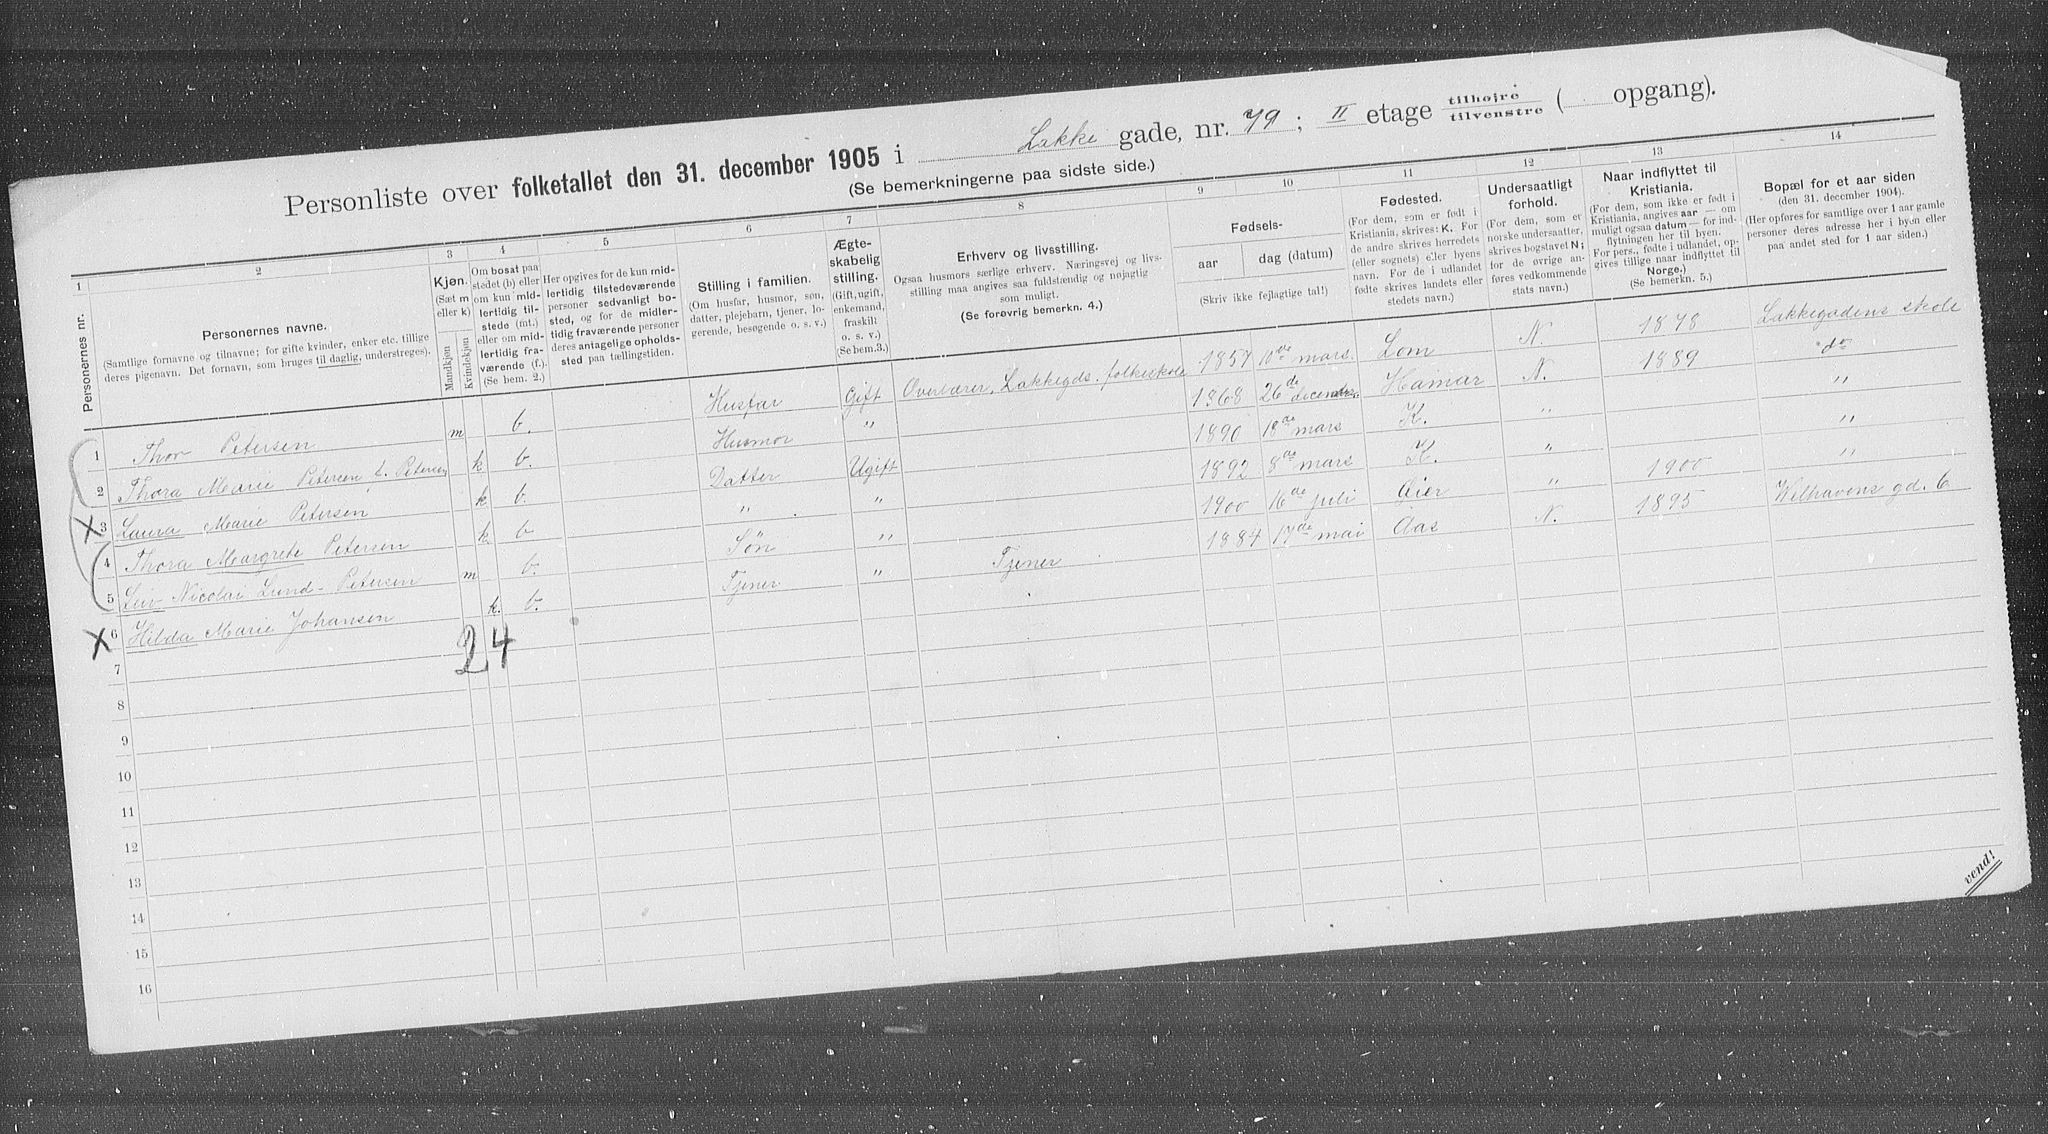 Personliste over folketallet den 31. december 1905 i Lakke gade, nr. 79; II etage tilhøire tilvenstre ( opgang).
(Se bemerkningerne paa sidste side.)
1 2 3 4 5 6 7 8 9 10 11 12 13 14
Personernes nr.
Personernes navne.
(Samtlige fornavne og tilnavne; for gifte kvinder, enker etc. tillige
deres pigenavn. Det fornavn, som bruges til daglig, understreges).
Kjøn.
(Sæt m
eller k)
Mandkjøn
Kvindekjøn
Om bosat paa
stedet (b) eller
om kun mid-
lertidig til-
stede (mt.)
eller om mid-
lertidig fra-
værende (f.).
(Se bem. 2.)
Her opgives for de kun mid-
lertidig tilstedeværende
personer sedvanligt bo-
sted, og for de midler-
tidig fraværende personer
deres antagelige opholds-
sted paa tællingstiden.
Stilling i familien.
(Om husfar, husmor, søn,
datter, plejebarn, tjener, lo-
gerende, besøgende o. s. v.)
Ægte-
skabelig
stilling.
(Gift, ugift,
enkemand,
fraskilt
o. s. v.)
(Se bem.3.)
Erhverv og livsstilling.
Ogsaa husmors særlige erhverv. Næringsvej og livs-
stilling maa angives saa fuldstændig og nøjagtig
som muligt.
(Se forøvrig bemerkn. 4.)
Fødsels-
aar dag (datum)
(Skriv ikke fejlagtige tal!)
Fødested.
(For dem, som er født i
Kristiania, skrives: K. For
de andre skrives herredets
(eller sognets) eller byens
navn. For de i udlandet
fødte skrives landets eller
stedets navn.)
Undersaatligt
forhold.
(For dem, som er
norske undersaatter,
skrives bogstavet N;
for de øvrige an-
føres vedkommende
stats navn.)
Naar indflyttet til
Kristiania.
(For dem, som ikke er født i
Kristiania, angives aar — om
muligt ogsaa datum — for ind-
flytningen her til byen.
For pers., fødte i udlandet, op-
gives tillige naar indflyttet til
Norge.)
(Se bemerkn. 5.)
Bopæl for et aar siden
(den 31. december 1904).
(Her opføres for samtlige over 1 aar gamle
personer deres adresse her i byen eller
paa andet sted for 1 aar siden.)
1 Thor Petersen m b. Husfar Gift Overlærer, Lakkegds. folkeskole 1857 10de mars. Lom N. 1878 Lakkegadens skole
2 Thora Marie Petersen f. Petersen k b. Husmor " 1868 26de december Hamar N. 1889 do
X 3 Laura Marie Petersen k b. Datter Ugift 1890 18de mars K. " "
4 Thora Margrete Petersen k. b " " 1892 8de mars K. " "
5 Leiv Nicolai Lund-Petersen m b. Søn " 1900 16de juli Øier " 1900 "
X 6 Hilda Marie Johansen k. b. Tjener " Tjener 1884 17de mai Aas N. 1895 Welhavens gd. 6
24
7
8
9
10
11
12
13
14
15
16
vend!